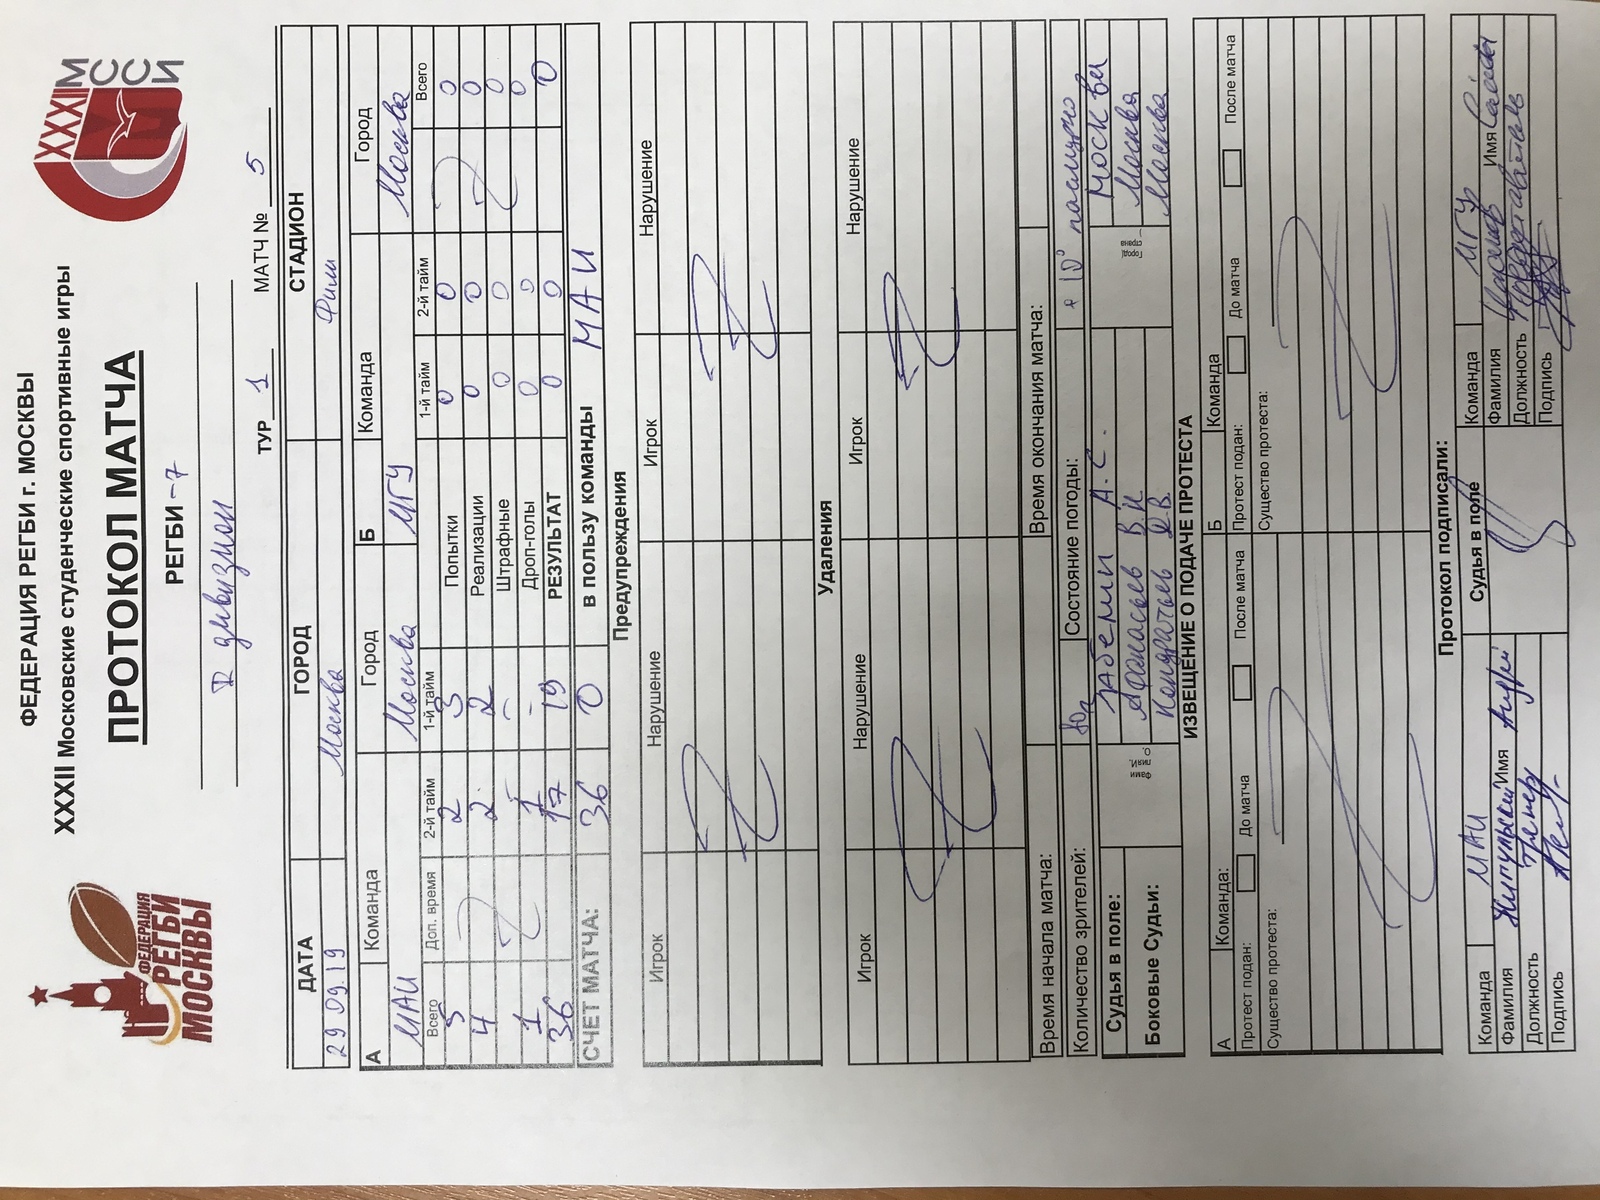 ФЕДЕРАЦИЯ РЕГБИ г. МОСКВЫ
XXXII Московские студенческие спортивные игры
ПРОТОКОЛ МАТЧА
РЕГБИ -7
ФЕДЕРАЦИЯ
РЕГБИ
МОСКВЫ
XXXII М
С С
С И
дивизион
ТУР 1 МАТЧ № 5
ДАТА ГОРОД СТАДИОН
29.09.19 Москва Фили
А Команда Город Б Команда Город
МАИ Москва МГУ Москва
Всего Доп. время 2-й тайм 1-й тайм 1-й тайм 2-й тайм Всего
5 2 3 Попытки 0 0 0
4 2 2 Реализации 0 0 0
- - Штрафные 0 0 0
1 1 - Дроп-голы 0 0 0
36 17 19 РЕЗУЛЬТАТ 0 0 0
СЧЕТ МАТЧА: 36 0 в пользу команды МАИ
Предупреждения
Игрок Нарушение Игрок Нарушение
Удаления
Игрок Нарушение Игрок Нарушение
Время начала матча: Время окончания матча:
Количество зрителей: Состояние погоды: + 10°
Судья в поле: А.С. Москвы
Боковые Судьи: Афанасьев В.И. Москва
Кондратьев В.В. Москва
ИЗВЕЩЕНИЕ О ПОДАЧЕ ПРОТЕСТА
А Команда: Б Команда
Протест подан: До матча После матча Протест подан: До матча После матча
Существо протеста: Существо протеста:
Протокол подписали:
Команда МАИ Судья в поле Команда МГУ
Фамилия Имя Андрей Фамилия Имя
Должность Тренер Должность
Подпись Подпись